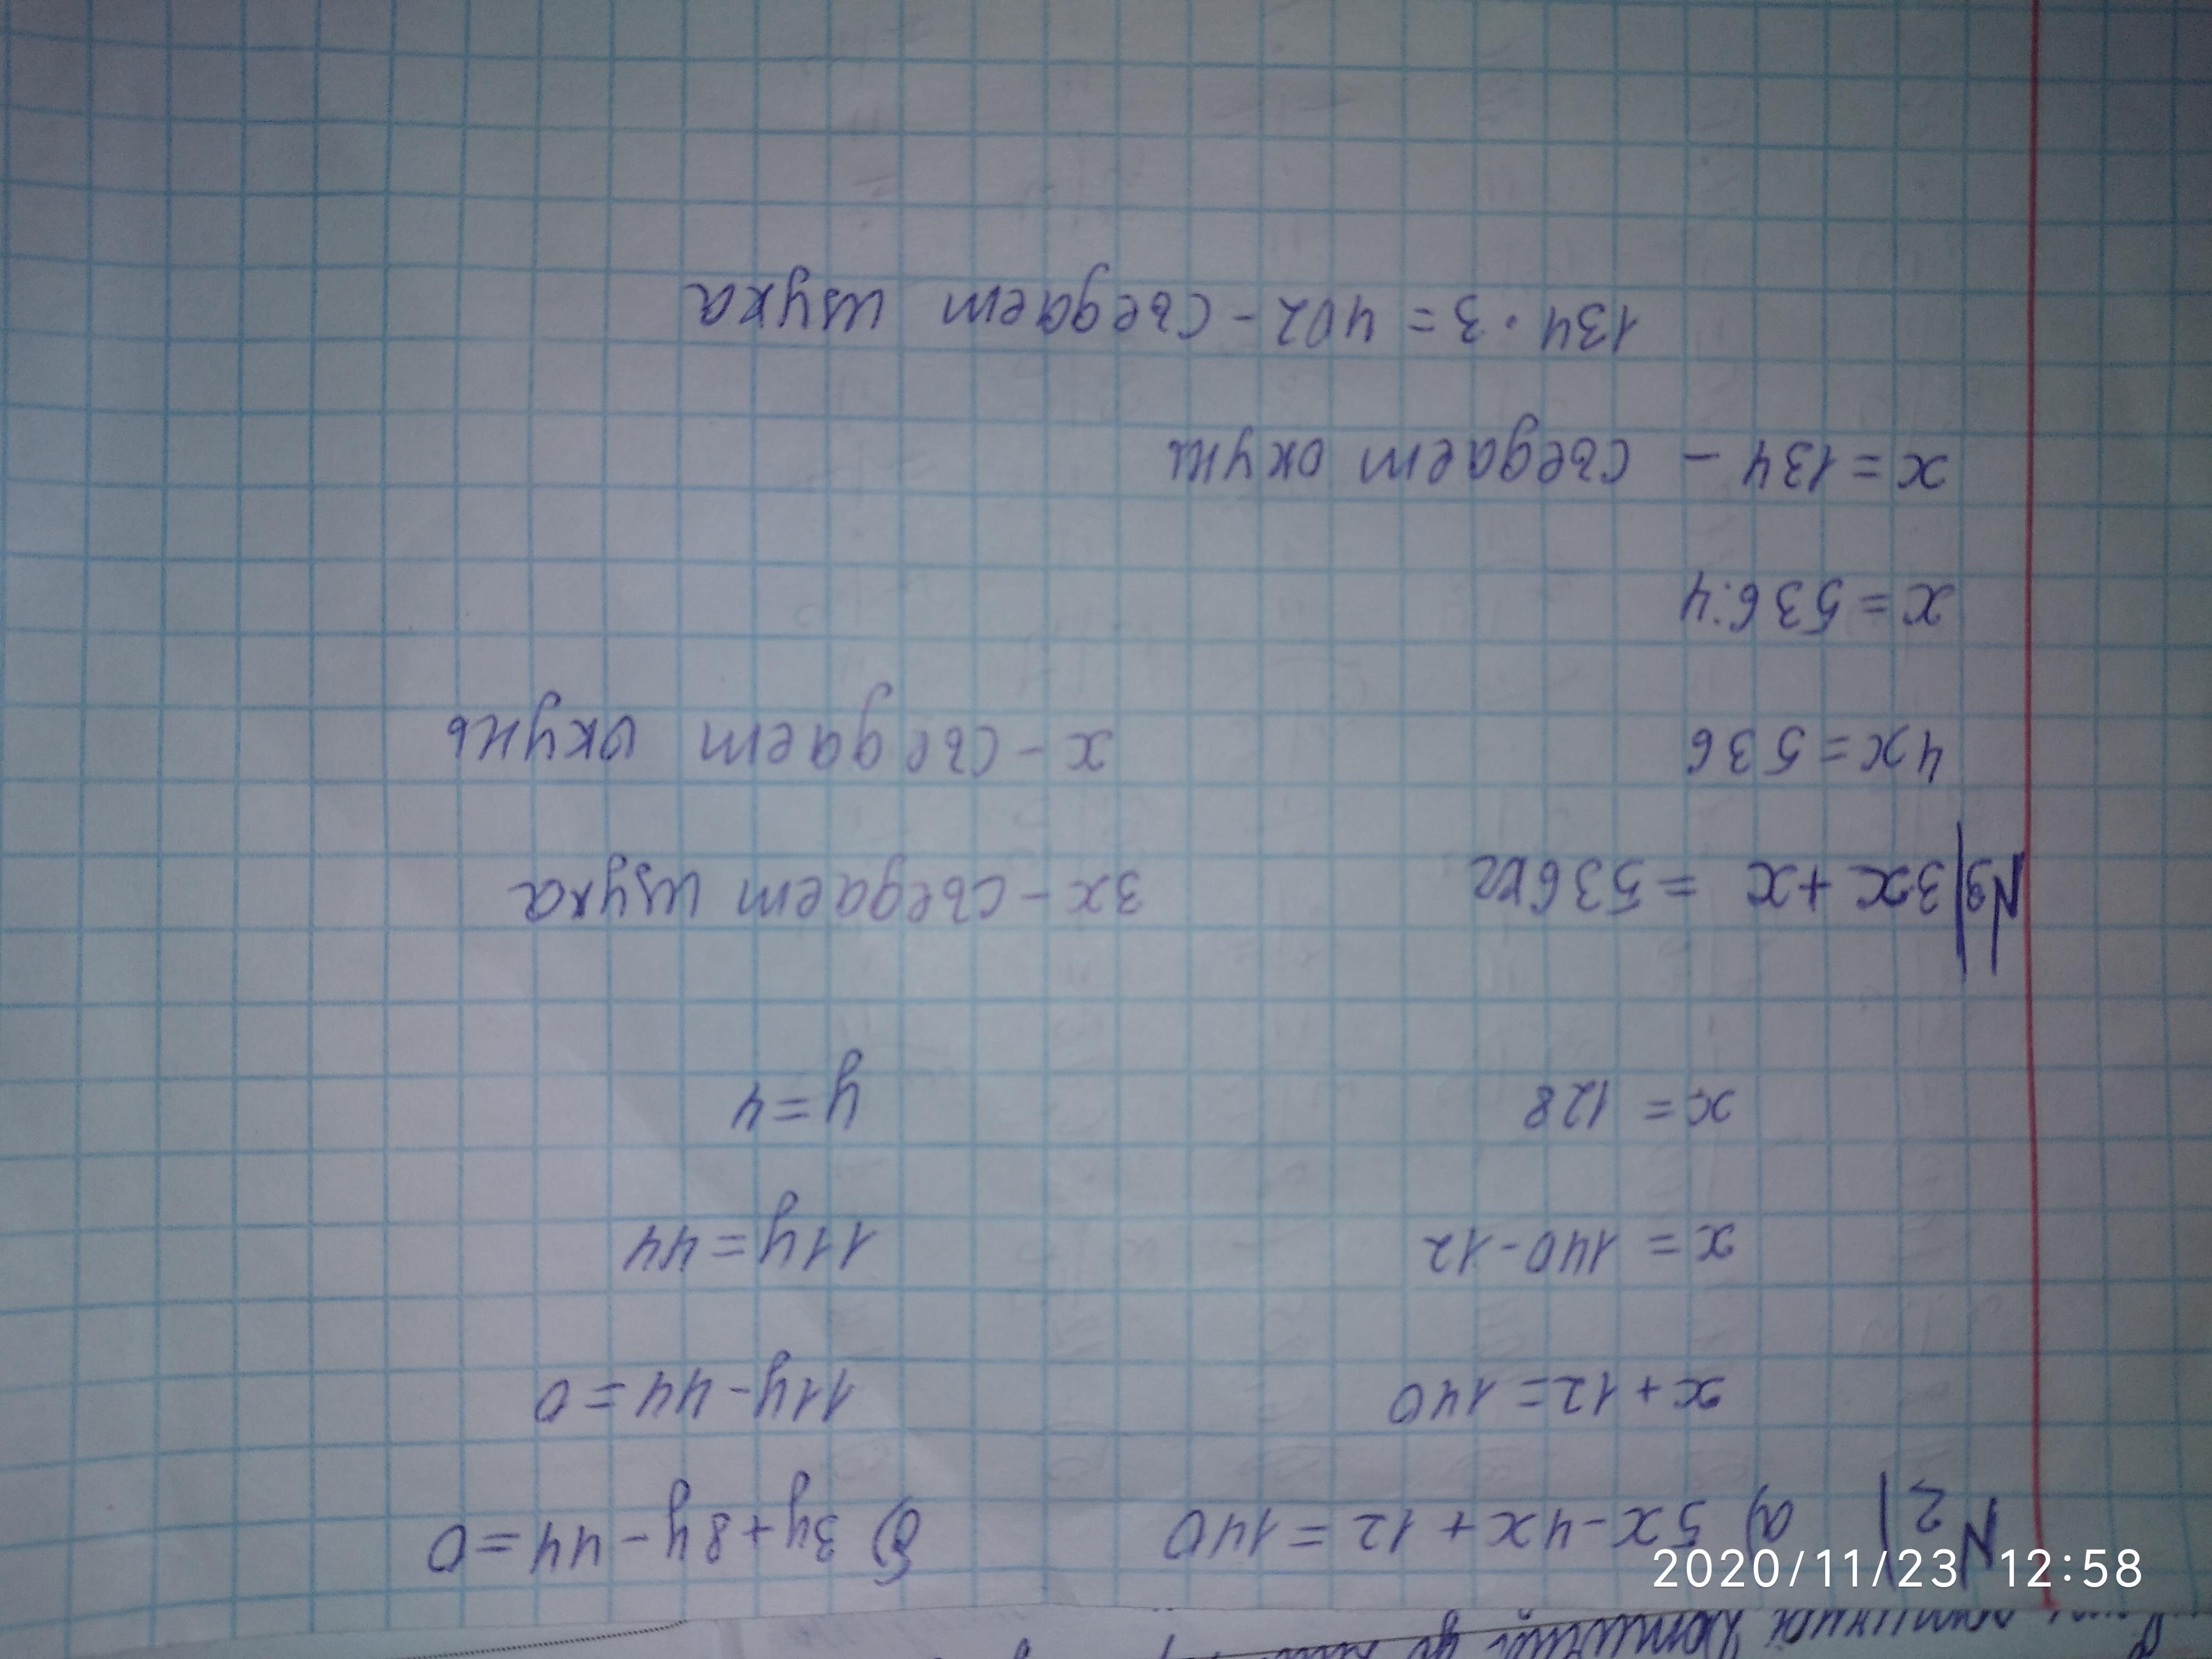 N2) а) 5x-4x+12=140 б) 3y+8y-44=0
x+12=140 11y-44=0
x= 140-12 11y=44
x= 128 y=4
N3) 3x+x =536кг 3x-съедает щука
4x=536 x-съедает окунь
x=536:4
x=134 - съедает окунь
134·3=402-съедает щука
2020/11/23 12:58